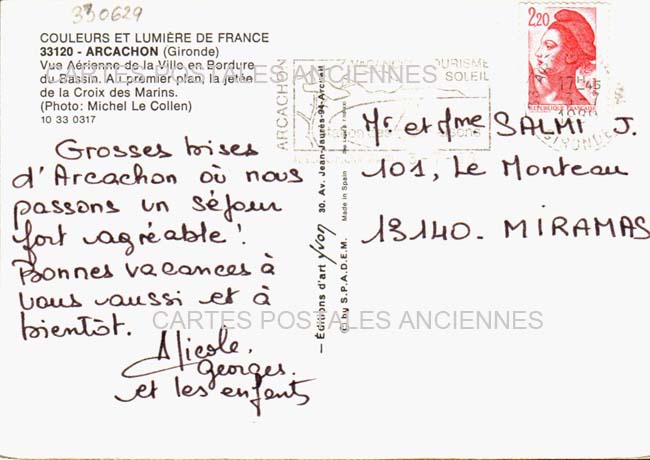 330629
COULEURS ET LUMIÈRE DE FRANCE
33120 - ARCACHON (Gironde)
Vue Aérienne de la Ville en Bordure
du Bassin. Au premier plan, la jetée
de la Croix des Marins.
(Photo: Michel Le Collen)
10 33 0317
Grosses bises
d'Arcachon où nous
passons un séjour
fort agréable !
Bonnes vacances à
vous aussi et à
bientôt.
Nicole,
Georges
et les enfants
— Éditions d'art yvon 30, Av. Jean-Jaurès-94-Arcueil
© by S.P.A.D.E.M. Made in Spain
ARCACHON
TOURISME
SOLEIL
17-45
GIRONDE
2,20
RÉPUBLIQUE FRANÇAISE
Mr et Mme SALMI J.
101, Le Monteau
13140. MIRAMAS
CARTES POSTALES ANCIENNES
CARTES POSTALES ANCIENNES